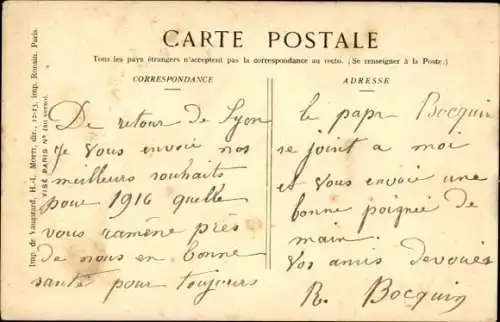 CARTE POSTALE
Tous les pays étrangers n'acceptent pas la correspondance au recto. (Se renseigner à la Poste.)
CORRESPONDANCE
De retour de Lyon
Je vous envoie nos
meilleurs souhaits
pour 1916 quelle
vous ramène près
de nous en bonne
santé pour toujours
ADRESSE
le papa Bocquin
se joint a moi
et vous envoie une
bonne poignée de
main.
Vos amis devoués
R. Bocquin
Imp. de Vaugirard, H.-L. Motti, dir., 12-13, imp. Ronsin, Paris.
VISÉ PARIS N° (au verso).